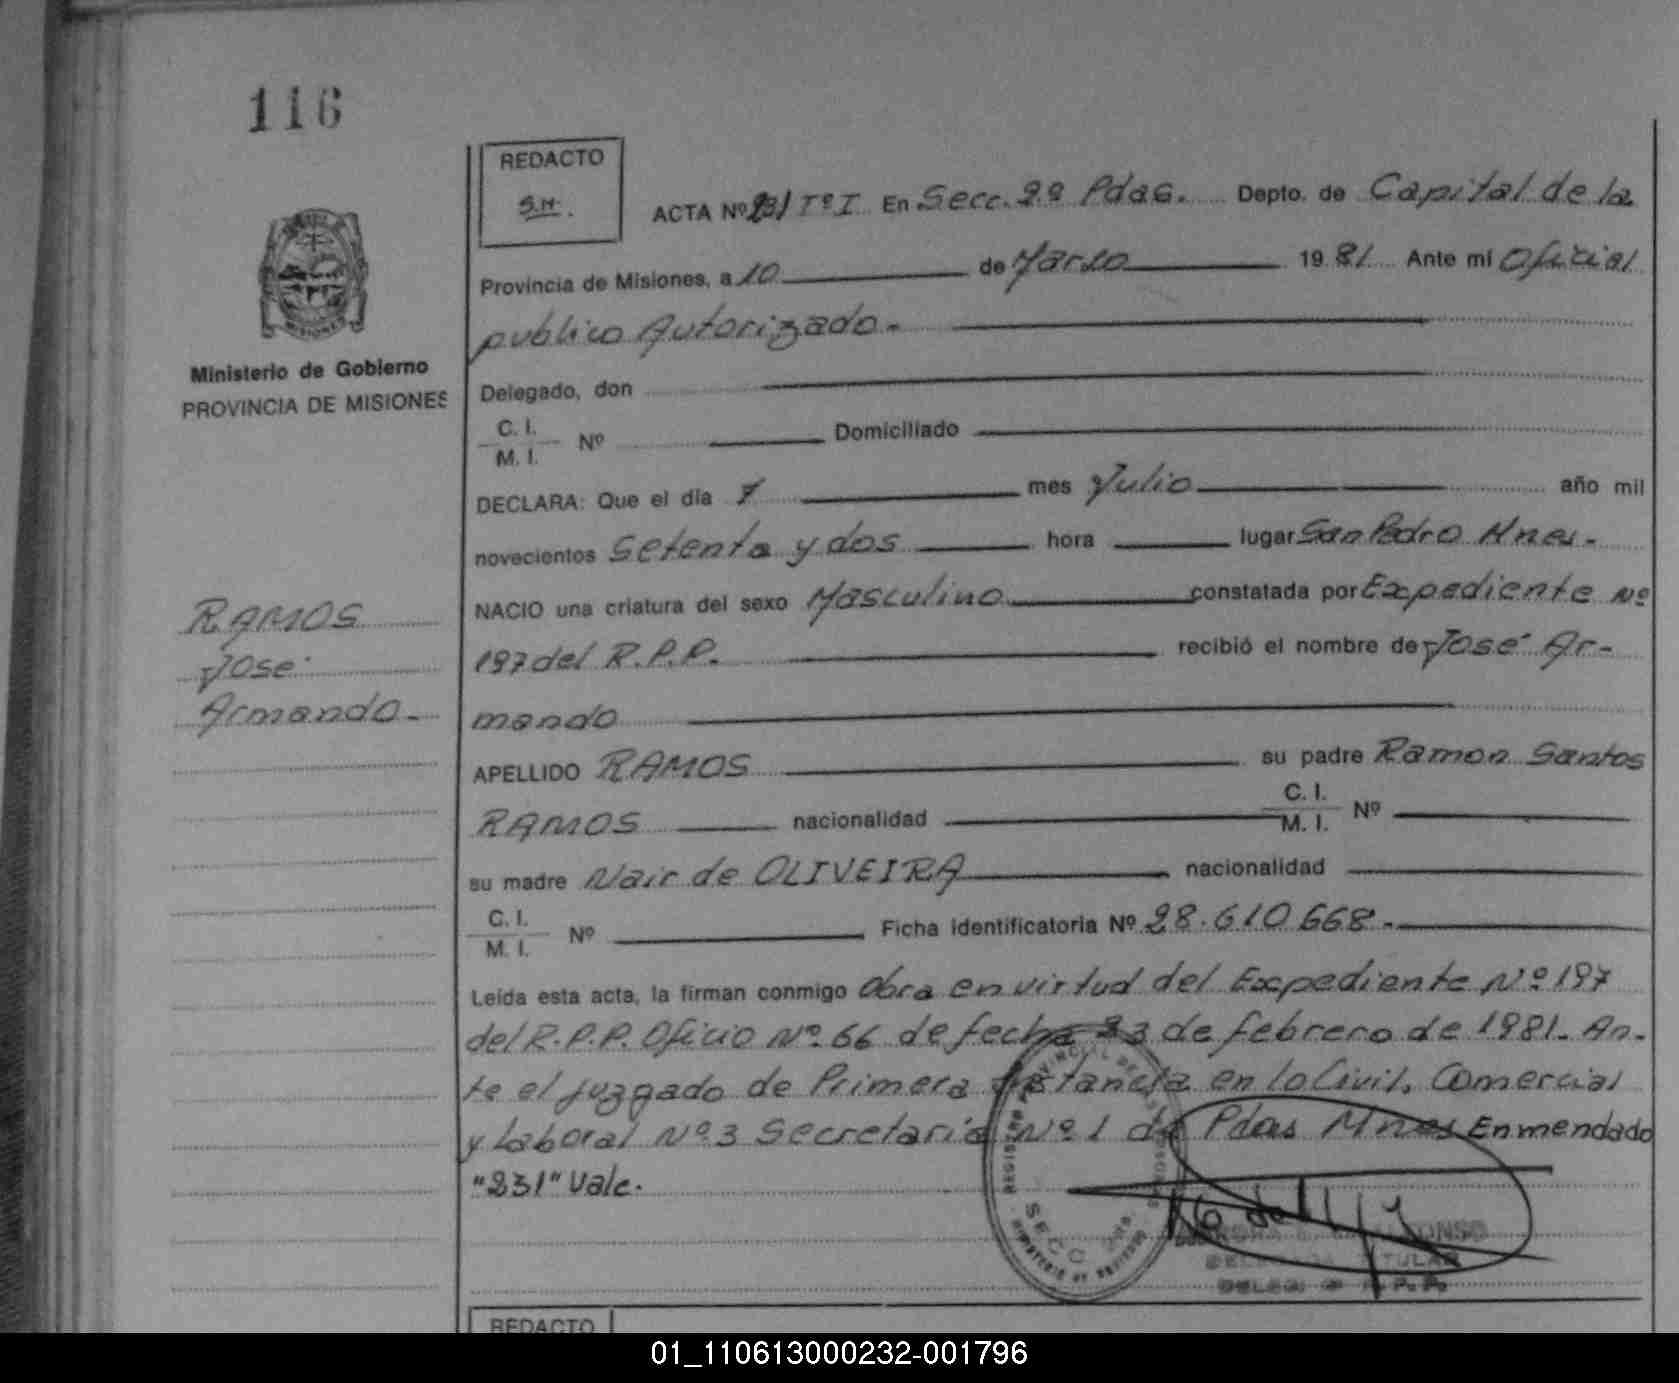 116
REDACTO
S.H.
ACTA Nº 231 Tº I En Secc. 2ª Pdas. Depto. de Capital de la
Provincia de Misiones, a 10 de Marzo 1981. Ante mí Oficial
publico Autorizado.-
MISIONES
Ministerio de Gobierno
PROVINCIA DE MISIONES
Delegado, don
C. I.
M. I. Nº Domiciliado
DECLARA: Que el día 7 mes Julio año mil
novecientos Setenta y dos hora lugar San Pedro Mnes.-
NACIO una criatura del sexo Masculino constatada por Expediente Nº
197 del R.P.P. recibió el nombre de José Ar-
mando
RAMOS
José
Armando.-
APELLIDO RAMOS su padre Ramon Santos
RAMOS nacionalidad C. I. M. I. Nº
su madre Nair de OLIVEIRA nacionalidad
C. I.
M. I. Nº Ficha identificatoria Nº 28.610.668.-
Leída esta acta, la firman conmigo Obra en virtud del Expediente Nº 197
del R.P.P. Oficio Nº 66 de fecha 23 de febrero de 1981. An-
te el juzgado de Primera Instancia en lo Civil, Comercial
y Laboral Nº 3 Secretaria Nº 1 de Pdas Mnes Enmendado
"231" Vale.
REGISTRO PROVINCIAL DE LAS PERSONAS
SECC 2da.
MINISTERIO DE GOBIERNO
TITULAR
R. P. P.
REDACTO
01_110613000232-001796